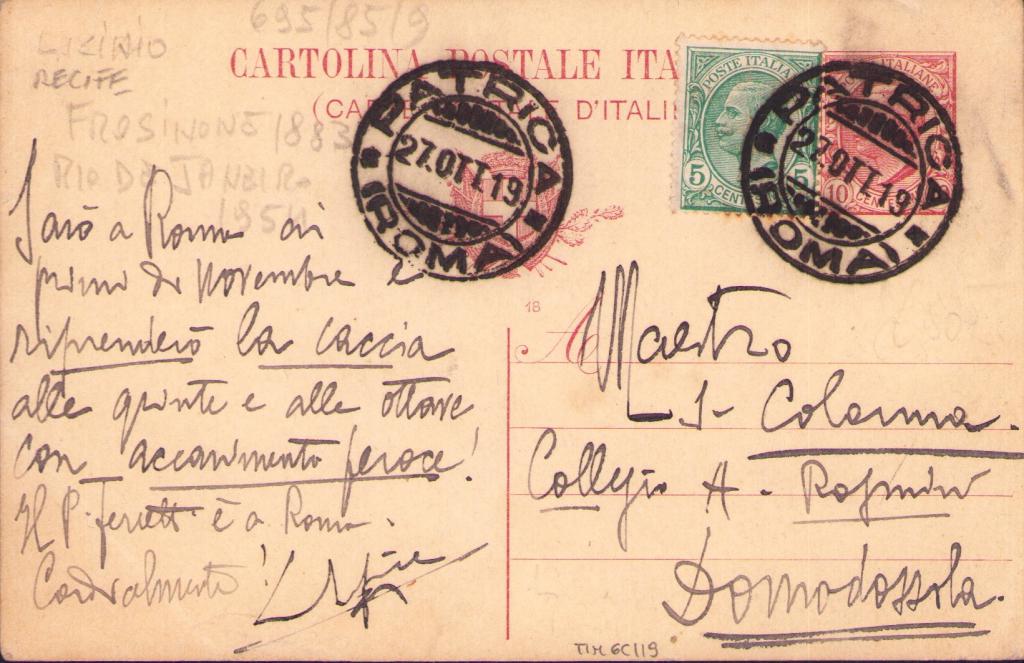 695/85/9
LICINIO
RECIFE
FROSINONE 1883
RIO DE JANEIRO
1954
CARTOLINA POSTALE ITA
(CAR E D'ITALI
PATRICA
27.OTT.19
(ROMA)
POSTE ITALIA
5 CENT 5
ITALIANE
10 CENTE
PATRICA
27.OTT.19
(ROMA)
18
Sarò a Roma ai
primi di novembre e
riprenderò la caccia
alle quinte e alle ottave
con accanimento feroce!
Il P. Ferretti è a Roma.
Cordialmente!
Maestro
I. Colonna.
Collegio A. Rosmini
Domodossola.
TIM 6C119